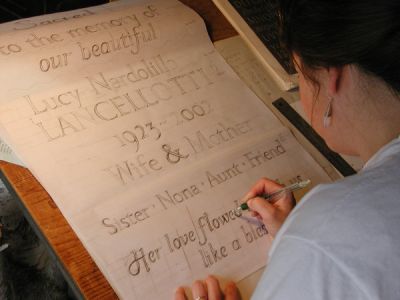 Sacred
to the memory of
our beautiful
Lucy Nardolillo
LANCELLOTTI
1923-2002
Wife & Mother
Sister · Nona · Aunt · Friend
Her love flowed us
like a bles